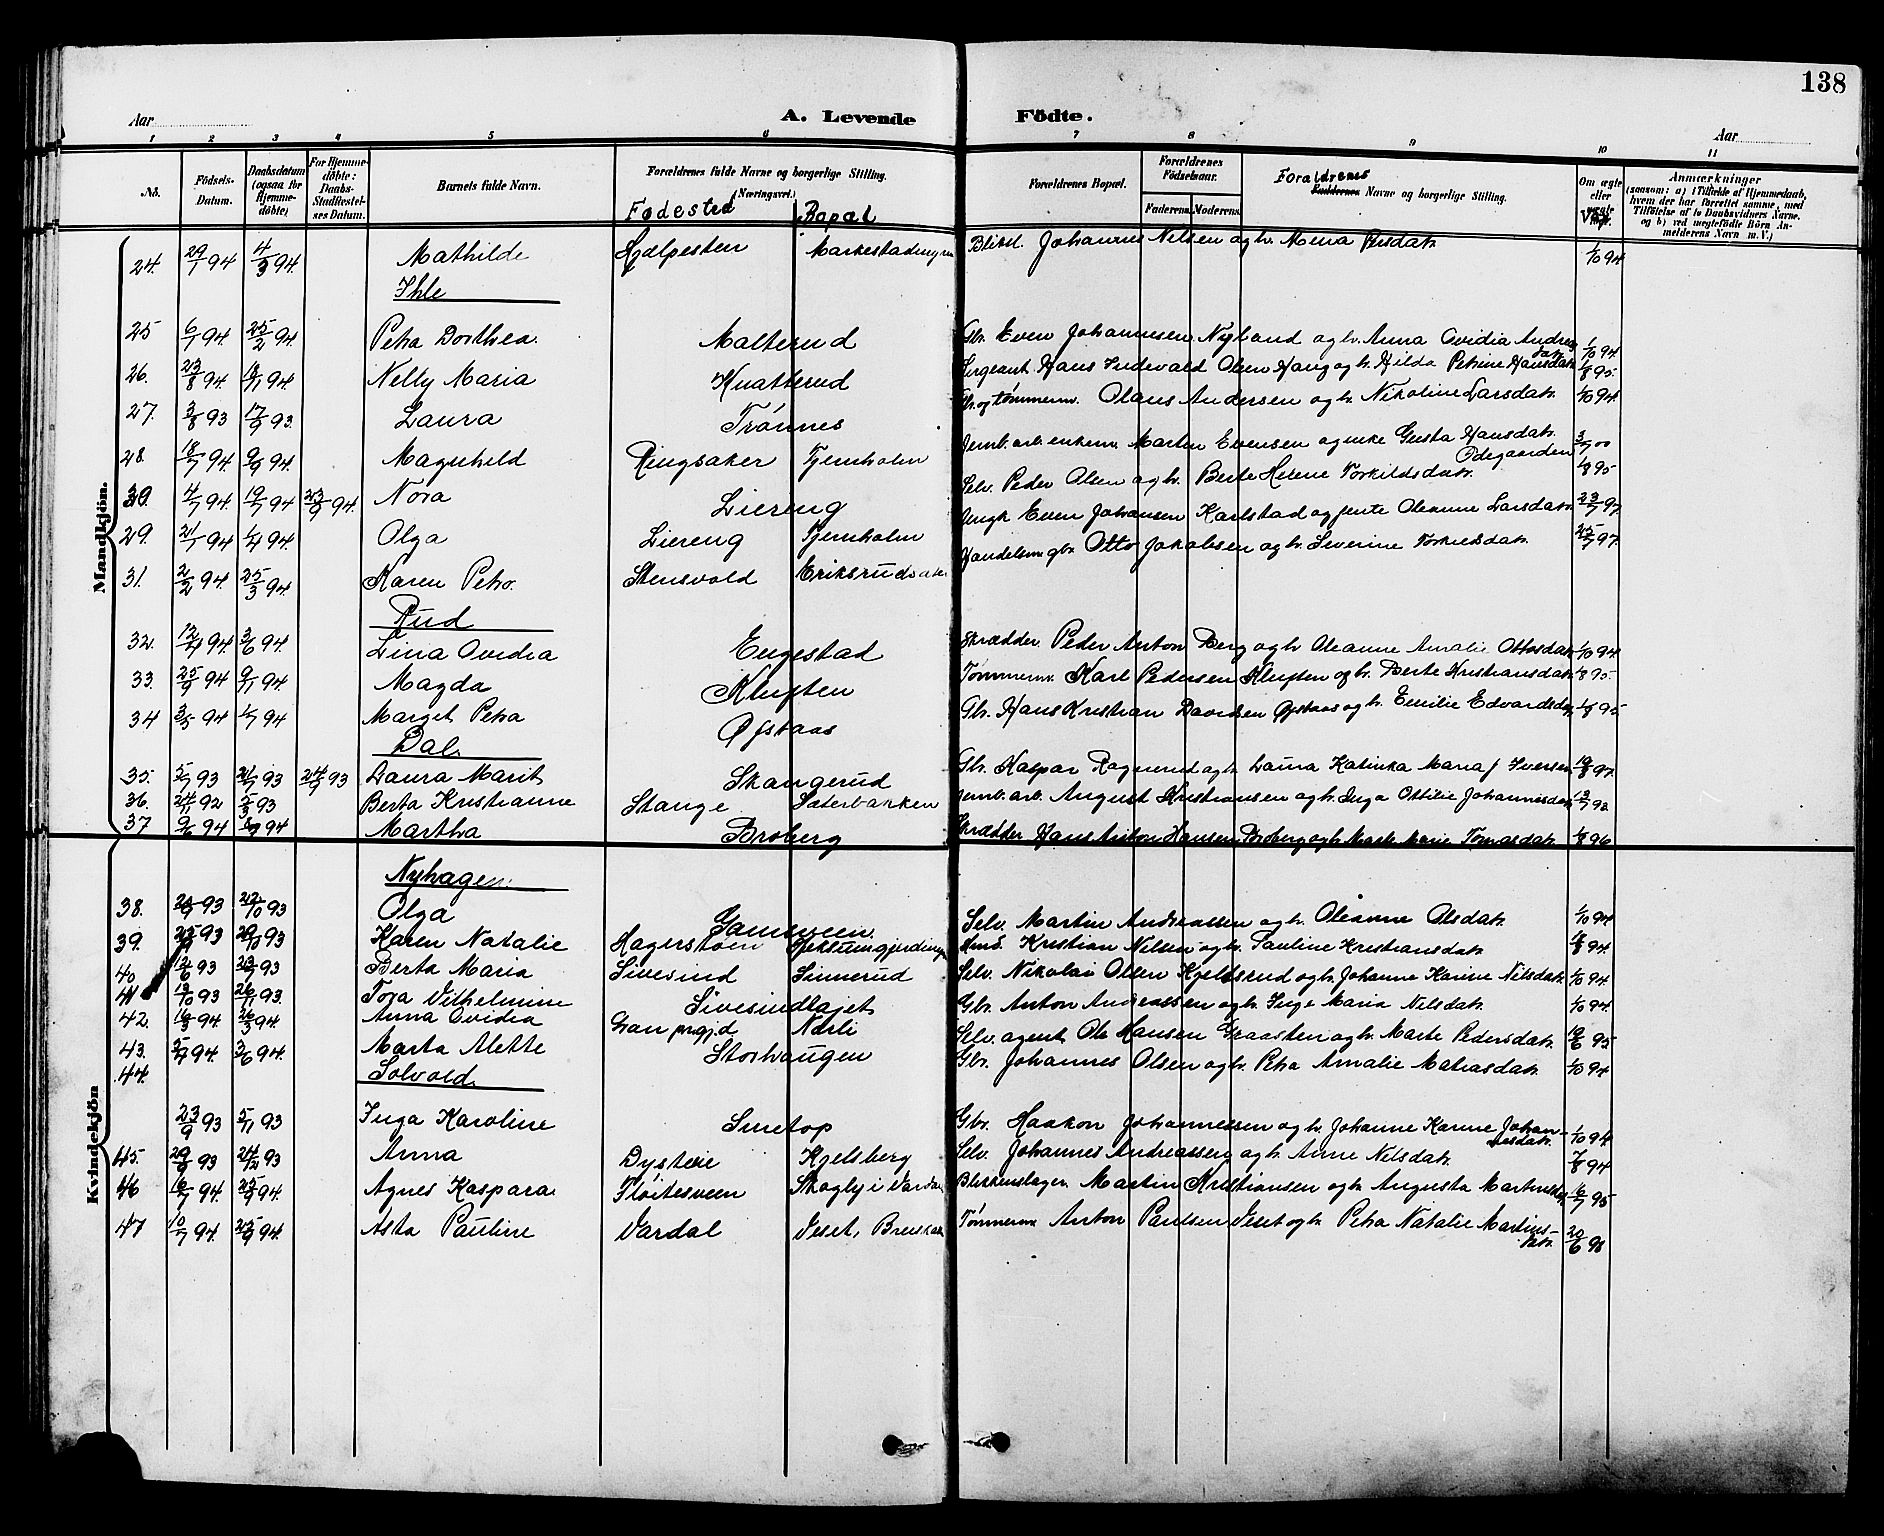 138
Aar
A. Levende Födte.
Aar
1 2 3 4 5 6 7 8 9 10 11
No.
Födsels-Datum.
Daabsdatum (ogsaa for Hjemme-döbte)
For Hjemme-döbte: Daabs-Stadfæstel-ses Datum.
Barnets fulde Navn.
Forældrenes fulde Navne og borgerlige Stilling.
(Næringsvei.)
Fødested Bopæl
Forældrenes Bopæl.
Forældrenes Födselsaar.
Faderens. Moderens.
Forældrenes
Faddernes Navne og borgerlige Stilling.
Om ægte eller
Anmærkninger
(saasom: a) i Tilfælde af Hjemmedaab, hvem der har forrettet samme, med Tilföielse af to Daabsvidners Navne, og b) ved uegtefödte Börn An-melderens Navn m. V.)
Mandkjön.
24. 29/1 94 4/3 94. Mathilde Johannes Nilsen og h. 1/10 94
Ihle
25 6/1 94. 25/2 94. Petra Dorthea. Malterud Gbr. Even Johannesen Nyland og h. Anna Ovidia 1/10 94
26. Nelly Maria Knatterud Sergeant Hans Olsen Haug og h. Hilda Petrine Hansdatr. 1/8 95
27. 3/8 93 17/9 93. Laura Trønnes Olaus Andersen og h. Nikoline Larsdatr. 1/10 94
28. 18/7 94 9/9 94. Magnhild Ringsaker Tjernholm Martin Evensen og enke Gusta Hansdatr. Ødegaarden
30. 4/7 94. 19/7 94 23/9 94. Nora Liereng Selv. Peder Olsen og h. Berte Helene Torkildsdatr. 1/8 95
29. 21/1 94 94. Olga Liereng Tjernholm Even Johansen Karlstad og pente Oleanne Larsdatr. 23/7 97.
31. 2/2 94. 25/3 94. Karen Petra. Stensvold Otto Jakobsen og h. Severine Torkildsdatr. 25/7 97.
Rud
32. 12/4 94. 3/6 94. Lina Ovidia Engestad Skrædder Peder Anton Berg og h. Oleanne Amalie Ottosdatr. 1/10 94
33. 25/9 94 9/11 94. Magda Kluften Tømmerm. Karl Pedersen Kluften og h. Berte Kristiansdatr. 1/8 95
34 3/5 94 1/7 94 Marget Petra Øfstaas Gbr. Hans Kristian Davidsen Øfstaas og h. Emilie 1/8 95
Dal.
35. 5/7 93 21/7 93 24/9 93 Laura Marit Skangerud Gbr. Kaspar Ragnerud og h. Laura Katinka Maria J Iversen 19/8 97.
36. 24/11 92 5/3 93 Berta Kristianne Stange Sæterbakken Jernb. arb. August Kristiansen og h. Inga Ottilie Johannesdatr
37 9/6 94 94 Martha Broberg Skrædder Hans Anton Hansen Broberg og h. Marte Marie Tomasdatr. 1/8 96
Kvindekjön
Nyhagen
38. 93 22/10 93 Olga Gamsveen. Selv. Martin Andreassen og h. Oleanne Olsdatr. 1/10 94
39. 93 29/10 93 Karen Natalie Hagerstøen Kristian Nilsen og h. Pauline Kristiansdatr. 94.
40 12/6 93 93 Berta Maria Sivesind Sinnerud Selv. Nikolai Olsen Kjeldsrud og h. Johanne Karine Nilsdatr. 1/10 94
41 13/10 93 26/11 93. Tora Vilhelmine Sivesindlajet Gbr. Anton Andreassen og h. Inge Maria Nilsdatr. 1/10 94.
42. 16/3 94. 26/3 94. Anna Ovidia Gran prgjd Nærli Selv. agent Ole Hansen Graasten og h. Marte Pedersdatr. 19/6 95
43. 94. 3/6 94. Marta Alette Storhaugen Gbr. Johannes Olsen og h. Petra Amalie Matiasdatr. 1/10 94
44. Solvold
23/9 93 5/11 93 Inga Karoline Smetop Gbr. Haakon Johannessen og h. Johanne Karine Johan-nesdatr. 1/10 94
45. 93 93 Anna Dysteie Kjelsberg Selv. Johannes Andreassen og h. Anne Nilsdatr. 7/8 94
46 16/7 94. 23/9 94. Agnes Kaspara Fløitesveen Skogly i Vardal Blikkenslager Martin Kristiansen og h. Augusta 95
47 10/7 94. 25/9 94. Asta Pauline Vardal Veset, Tømmerm. Anton Paulsen Veset og h. Petra Natalie Martins-datr. 20/6 98